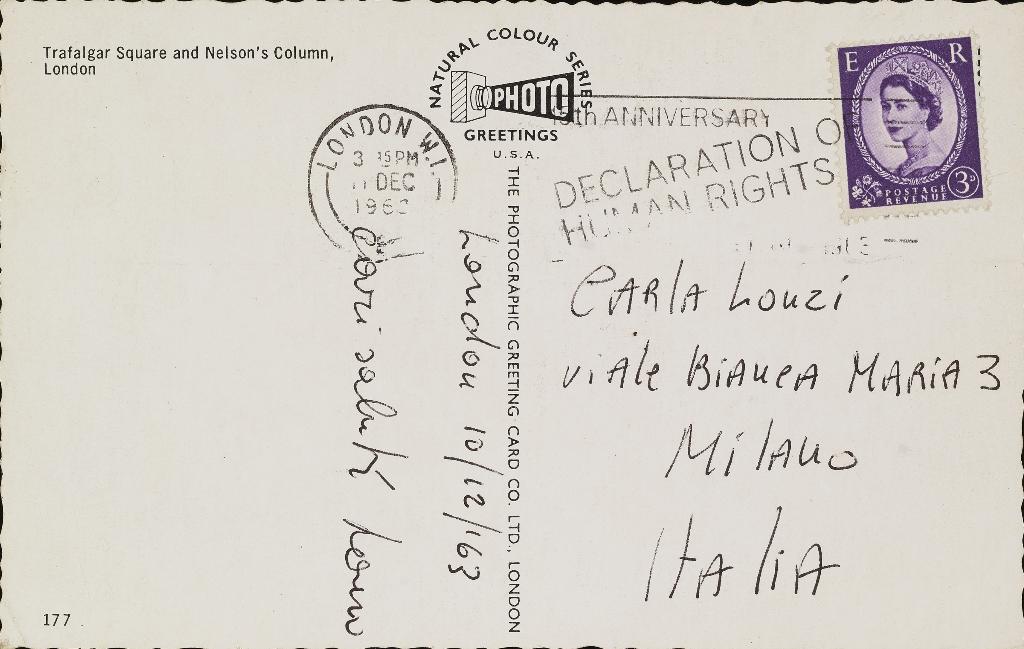 Trafalgar Square and Nelson's Column,
London
NATURAL COLOUR SERIES
PHOTO
GREETINGS
U.S.A.
LONDON W.1.
3 15 PM
11 DEC
1963
15th ANNIVERSARY
DECLARATION OF
HUMAN RIGHTS
E R
POSTAGE
REVENUE
3D
THE PHOTOGRAPHIC GREETING CARD CO. LTD., LONDON
London 10/12/63
cari saluti
CARLA Lonzi
viAle BiAncA MARiA 3
MilAno
ItAliA
177